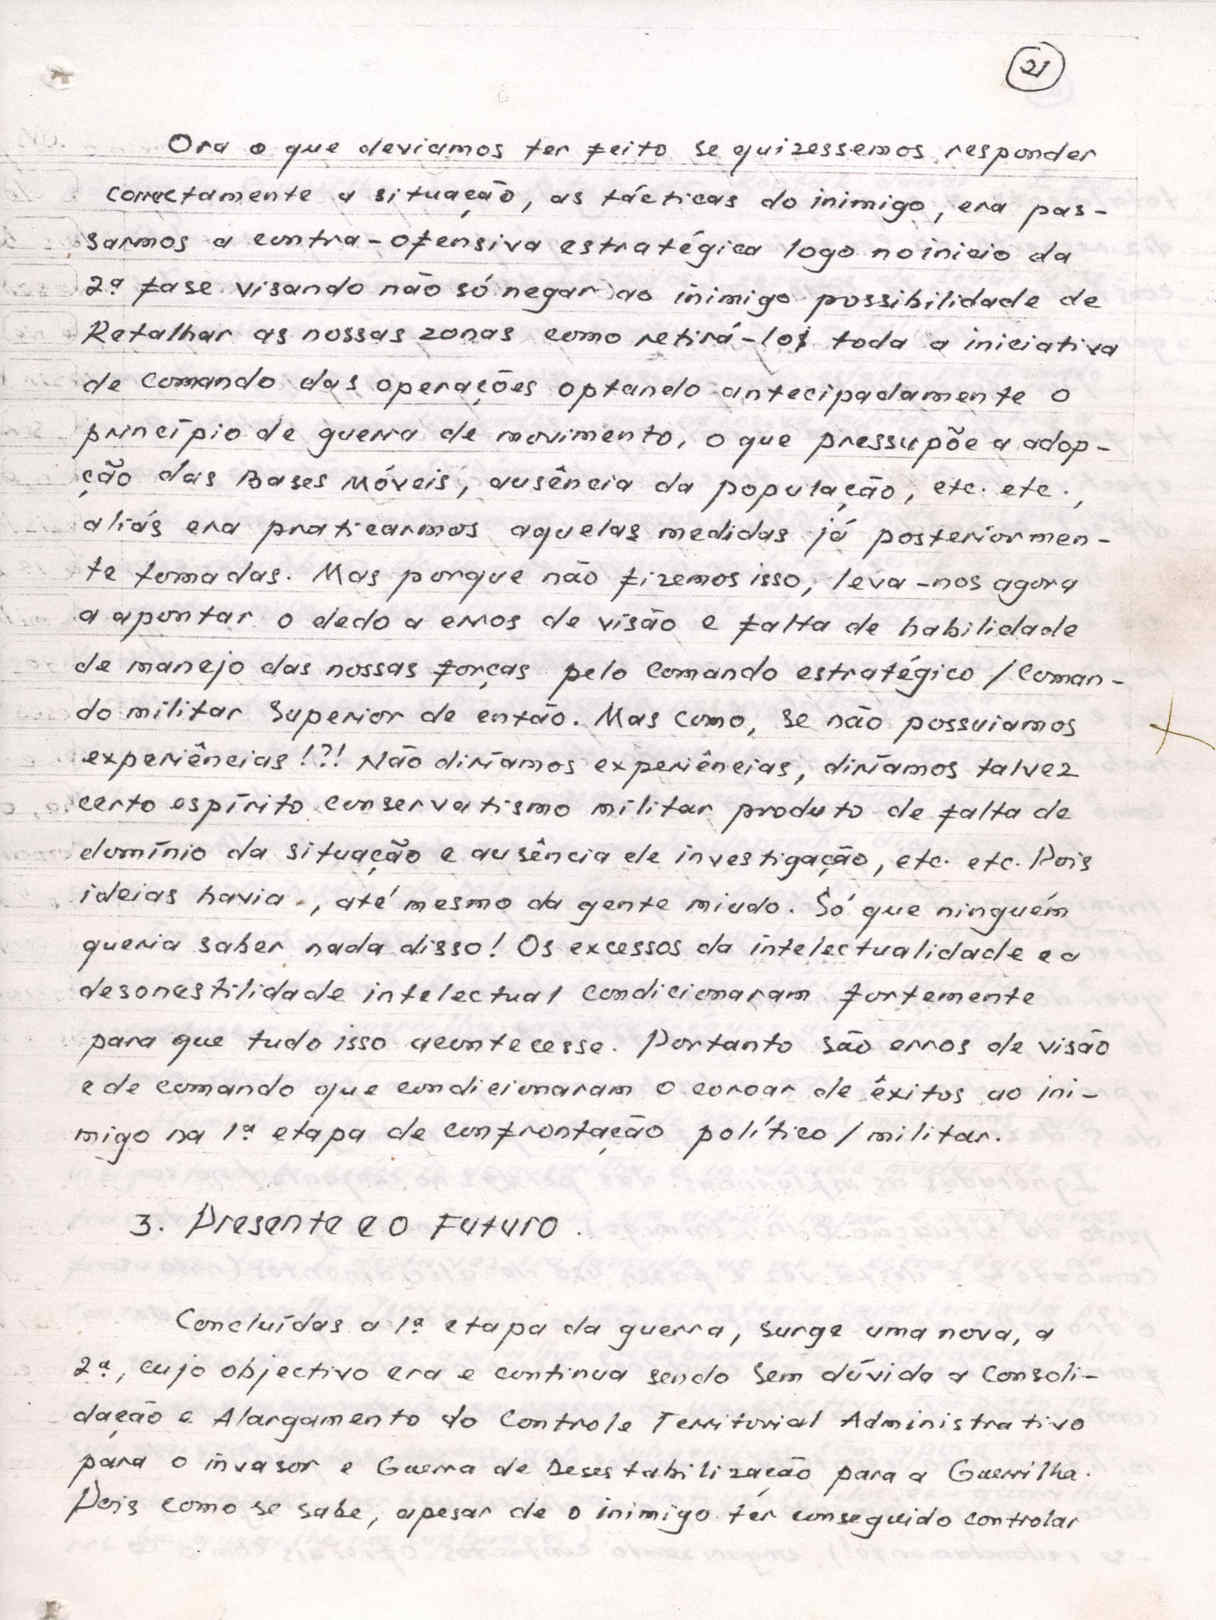 21
Ora o que deviamos ter feito se quizessemos responder
correctamente a situação, as tácticas do inimigo, era pas-
sarmos a contra-ofensiva estratégica logo no inicio da
2ª fase visando não só negar ao inimigo possibilidade de
Retalhar as nossas zonas como retirá-los toda a iniciativa
de comando das operações optando antecipadamente o
princípio de guerra de movimento, o que pressupõe a adop-
ção das Bases Móveis, ausência da população, etc. etc.,
aliás era praticarmos aquelas medidas já posteriormen-
te tomadas. Mas porque não fizemos isso, leva-nos agora
a apontar o dedo a erros de visão e falta de habilidade
de manejo das nossas forças pelo comando estratégico / Coman-
do militar Superior de então. Mas como, se não possuiamos
experiências!?! Não diríamos experiências, diríamos talvez
certo espírito conservatismo militar produto de falta de
domínio da situação e ausência de investigação, etc. etc. Pois
ideias havia, até mesmo da gente miudo. Só que ninguém
queria saber nada disso! Os excessos da intelectualidade e a
desonestilidade intelectual condicionaram fortemente
para que tudo isso acontecesse. Portanto são erros de visão
e de comando que condicionaram o coroar de êxitos ao ini-
migo na 1ª etapa de confrontação político / militar.
3. Presente e o Futuro.
Concluídas a 1ª etapa da guerra, surge uma nova, a
2ª, cujo objectivo era e continua sendo sem dúvida a Consoli-
dação e Alargamento do Controle Territorial Administrativo
para o invasor e Guerra de Desestabilização para a Guerrilha.
Pois como se sabe, apesar de o inimigo ter conseguido controlar